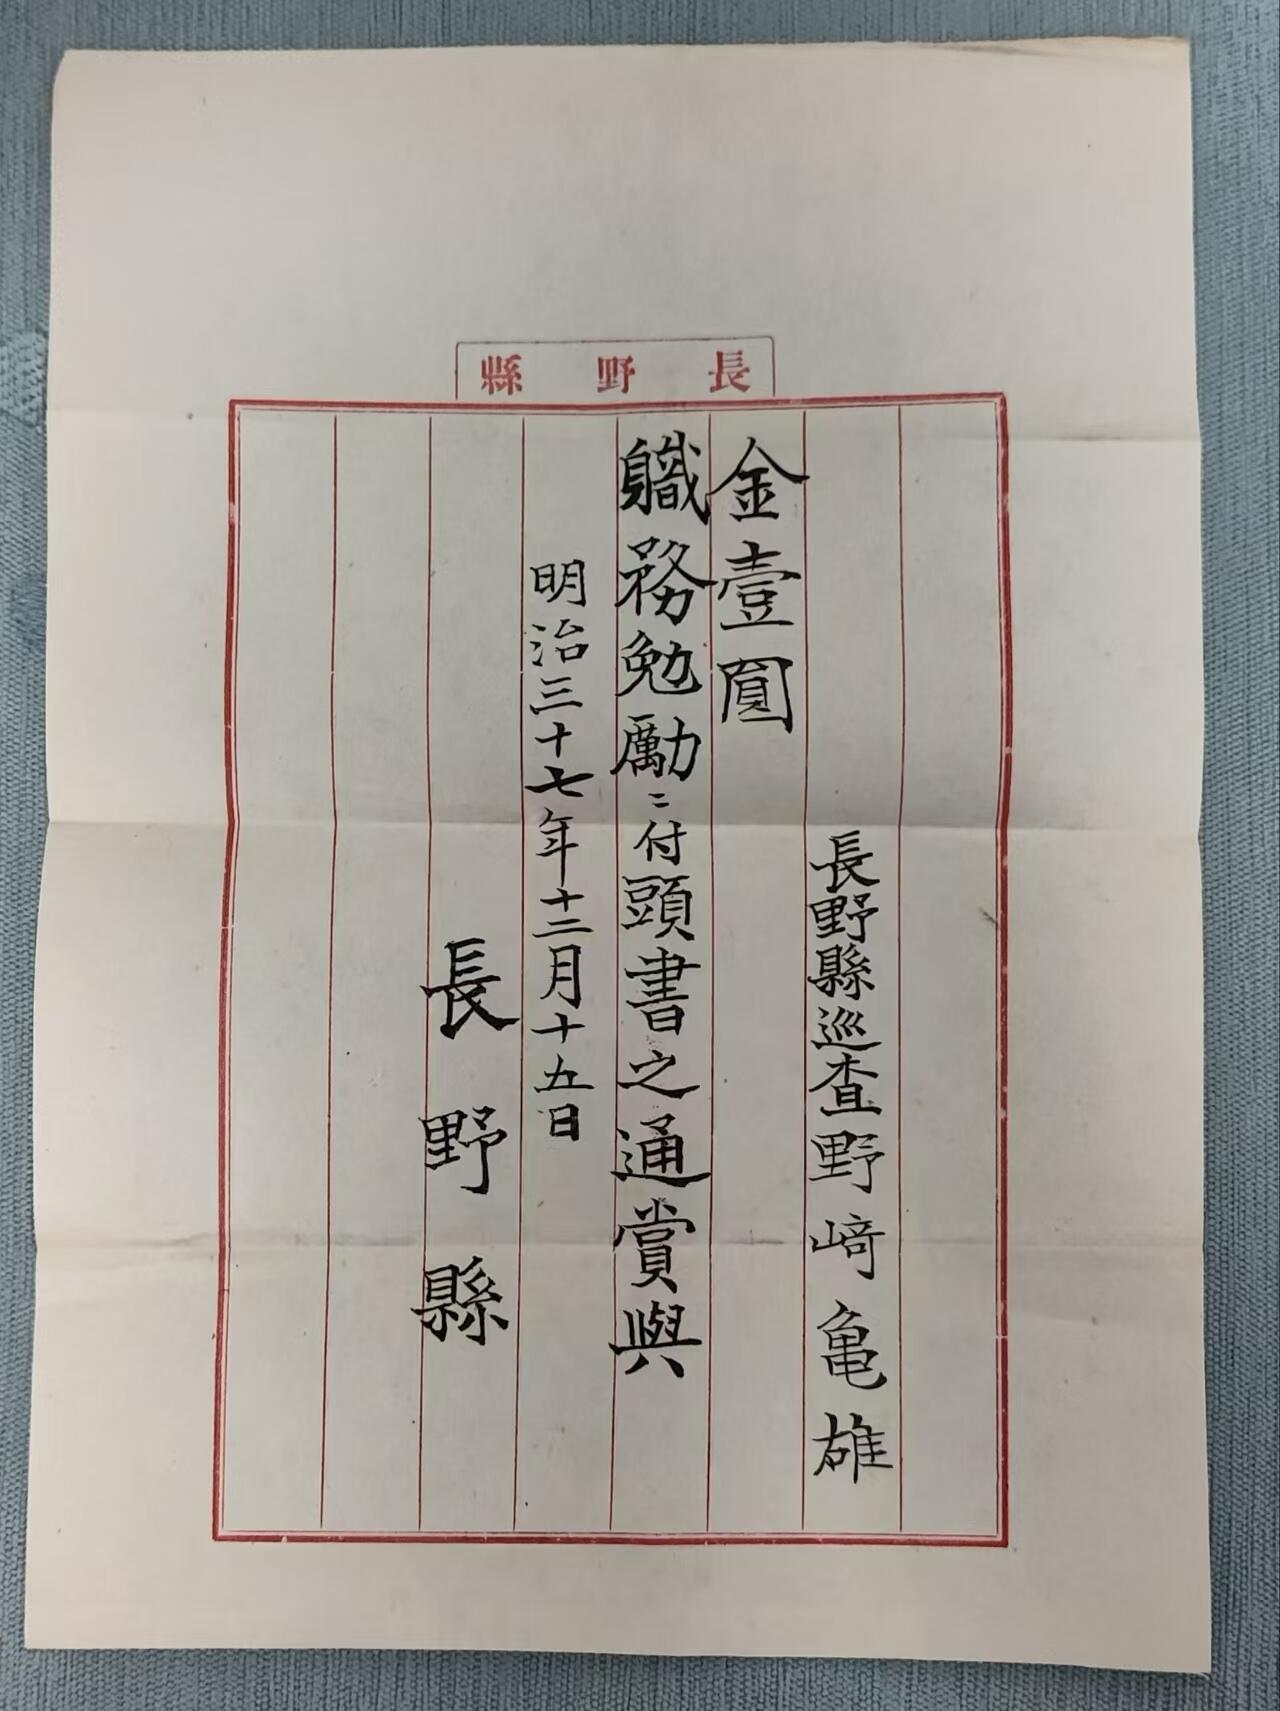 長野縣
長野縣巡查野﨑亀雄
金壹圓
軄務勉勵ニ付頭書之通賞與
明治三十七年十二月十五日
長野縣